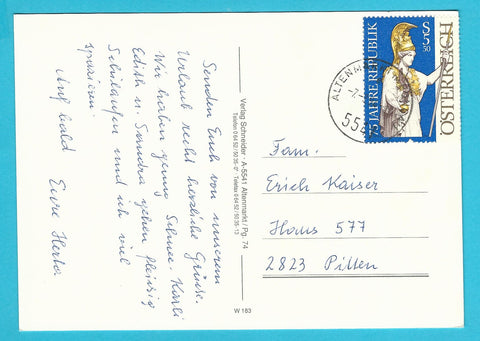 Senden Euch von unserem
Urlaub recht herzliche Grüsse.
Wir haben genug Schnee. Karli
Edith u. Sandra gehen fleissig
Schilaufen und ich viel
spazieren.
Auf bald Eure Herta
Verlag Schneider · A-5541 Altenmarkt / Pg. 74
Telefon 0 64 52 / 50 35-0* · Telefax 0 64 52 / 50 35-13
W 183
ALTENM
554
S 5
50
75 JAHRE REPUBLIK
ÖSTERREICH
Fam.
Erich Kaiser
Haus 577
2823 Pitten